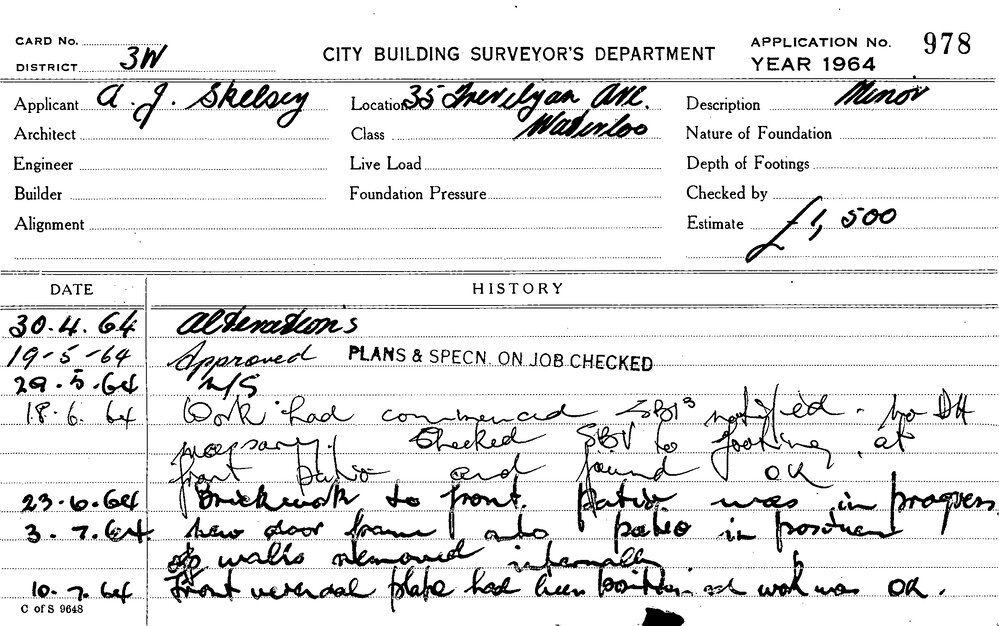 CARD No.
DISTRICT 3W
CITY BUILDING SURVEYOR'S DEPARTMENT
APPLICATION No. 978
YEAR 1964
Applicant A. J. Skelsey
Location 35 Trevelyan Ave.
Description Minor
Architect
Class Waterloo
Nature of Foundation
Engineer
Live Load
Depth of Footings
Builder
Foundation Pressure
Checked by
Alignment
Estimate £1,500
DATE HISTORY
30.4.64 Alterations
19-5-64 Approved PLANS & SPECN. ON JOB CHECKED
29.5.64 N/S
18.6.64 Work had commenced notified. no DH
necessary. Checked to footing at
front patio and found OK
23.6.64 Brickwork to front patio was in progress.
3.7.64 New door frame into patio in position
walls removed internally
10.7.64 Front verandah plate had been position work was OK.
C of S 9648